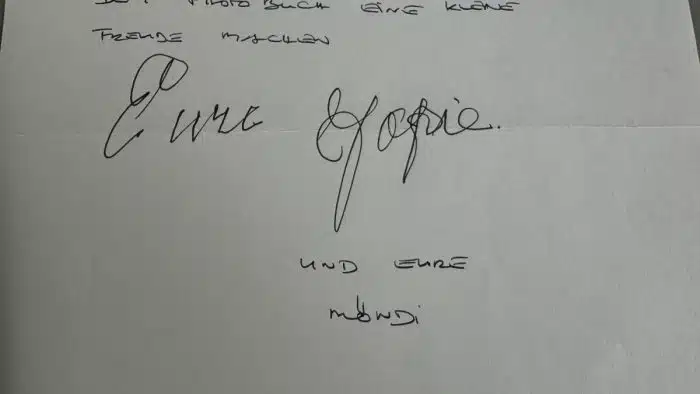 PHOTO BUCH EINE KLEINE
FREUDE MACHEN
Eure
UND EURE
MÖNDI